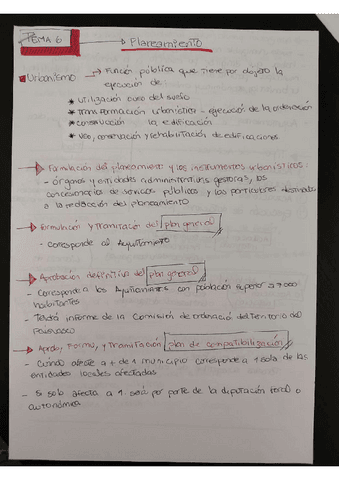 TEMA 6
Planeamiento
Urbanismo → Función pública que tiene por objeto la
ejecución de
* utilización o uso del suelo
* Transformación urbanística - ejecución de la ordenación
* conservación la edificación
* uso, conservación y rehabilitación de edificaciones
→ Formulación del planeamiento y los instrumentos urbanísticos:
- órganos y entidades administrativas gestoras, los
concesionarios de servicios públicos y los particulares
a la redacción del planeamiento
→ Formulación y tramitación del plan general
- corresponde al Ayuntamiento
→ Aprobación definitiva del plan general
- corresponde a los Ayuntamientos con población superior a 7000
habitantes
- Tendrá informe de la Comisión de ordenación del Territorio del
País Vasco
→ Aprob, Formu, y Tramitación plan de compatibilización
- Cuando afecte a + de 1 municipio corresponde a 1 sola de las
entidades locales afectadas
- Si solo afecta a 1 será por parte de la diputación foral o
autonómica